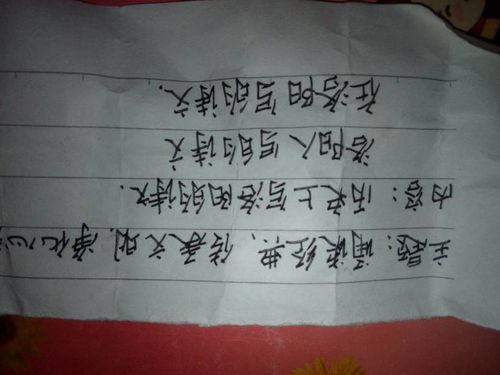 主题：诵读经典、传承文明、净化心
内容：历史上写洛阳的诗文．
洛阳人写的诗文
在洛阳写的诗文．